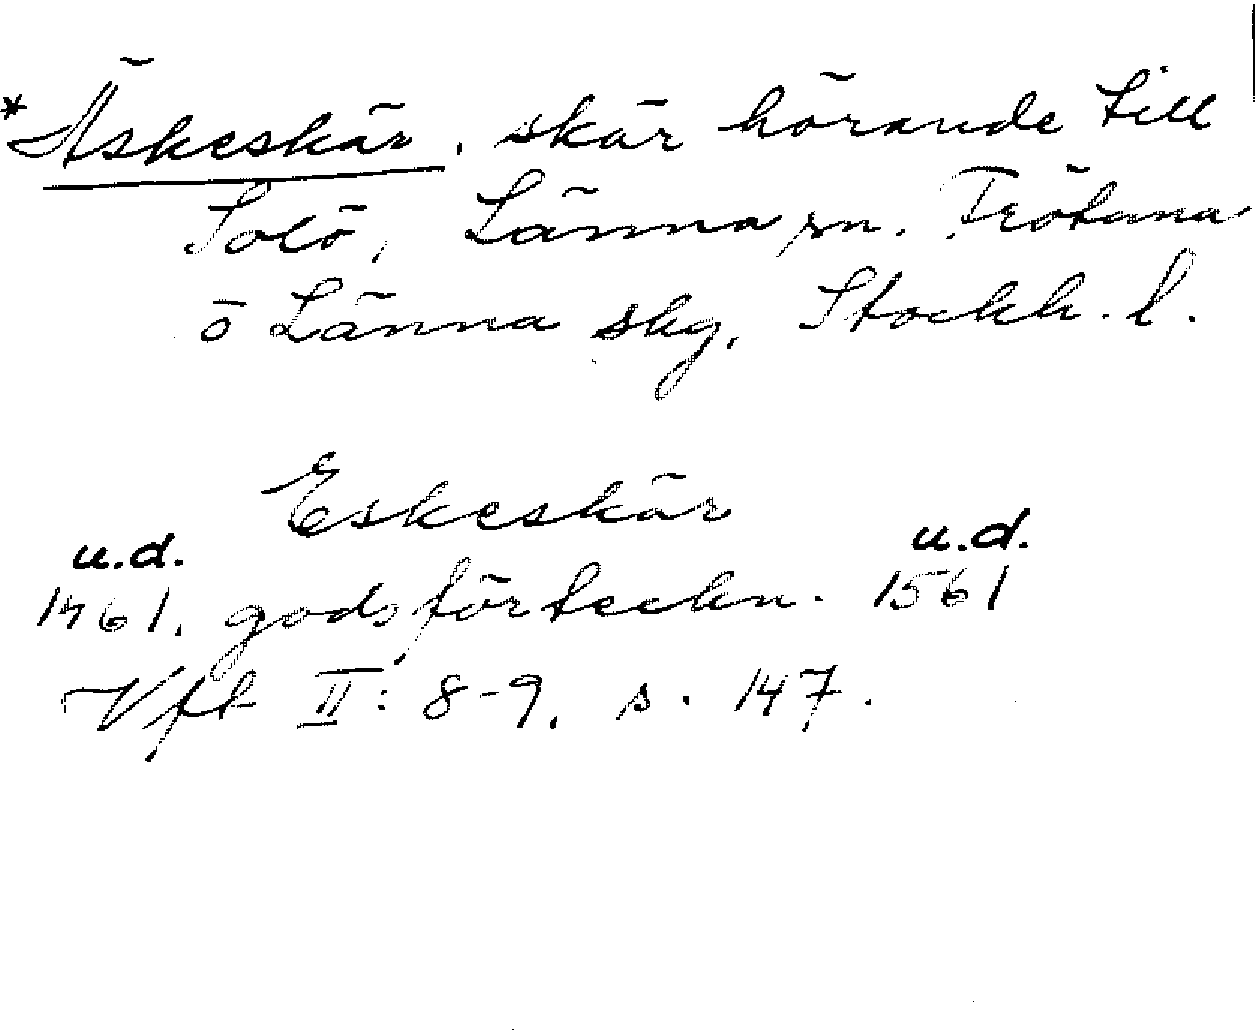 *Äskeskär, skär hörande till
Solö, Länna sn. Frötuna
o Länna skg, Stockh. l.
Eskeskär
u.d. u.d.
1461. godsförteckn. 1561
Vft II: 8-9, s. 147.